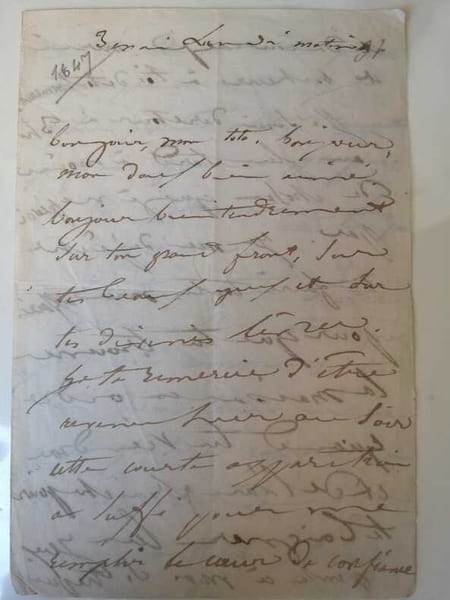 3 mai Lundi matin
1847
bonjour, mon toto, bonjour,
mon doux bien aimé,
bonjour bien tendrement
sur ton grand front, sur
tes beaux yeux et sur
tes divines lèvres.
je te remercie d'être
revenu hier au soir
cette courte apparition
a suffi pour me
remplir le cœur de confiance